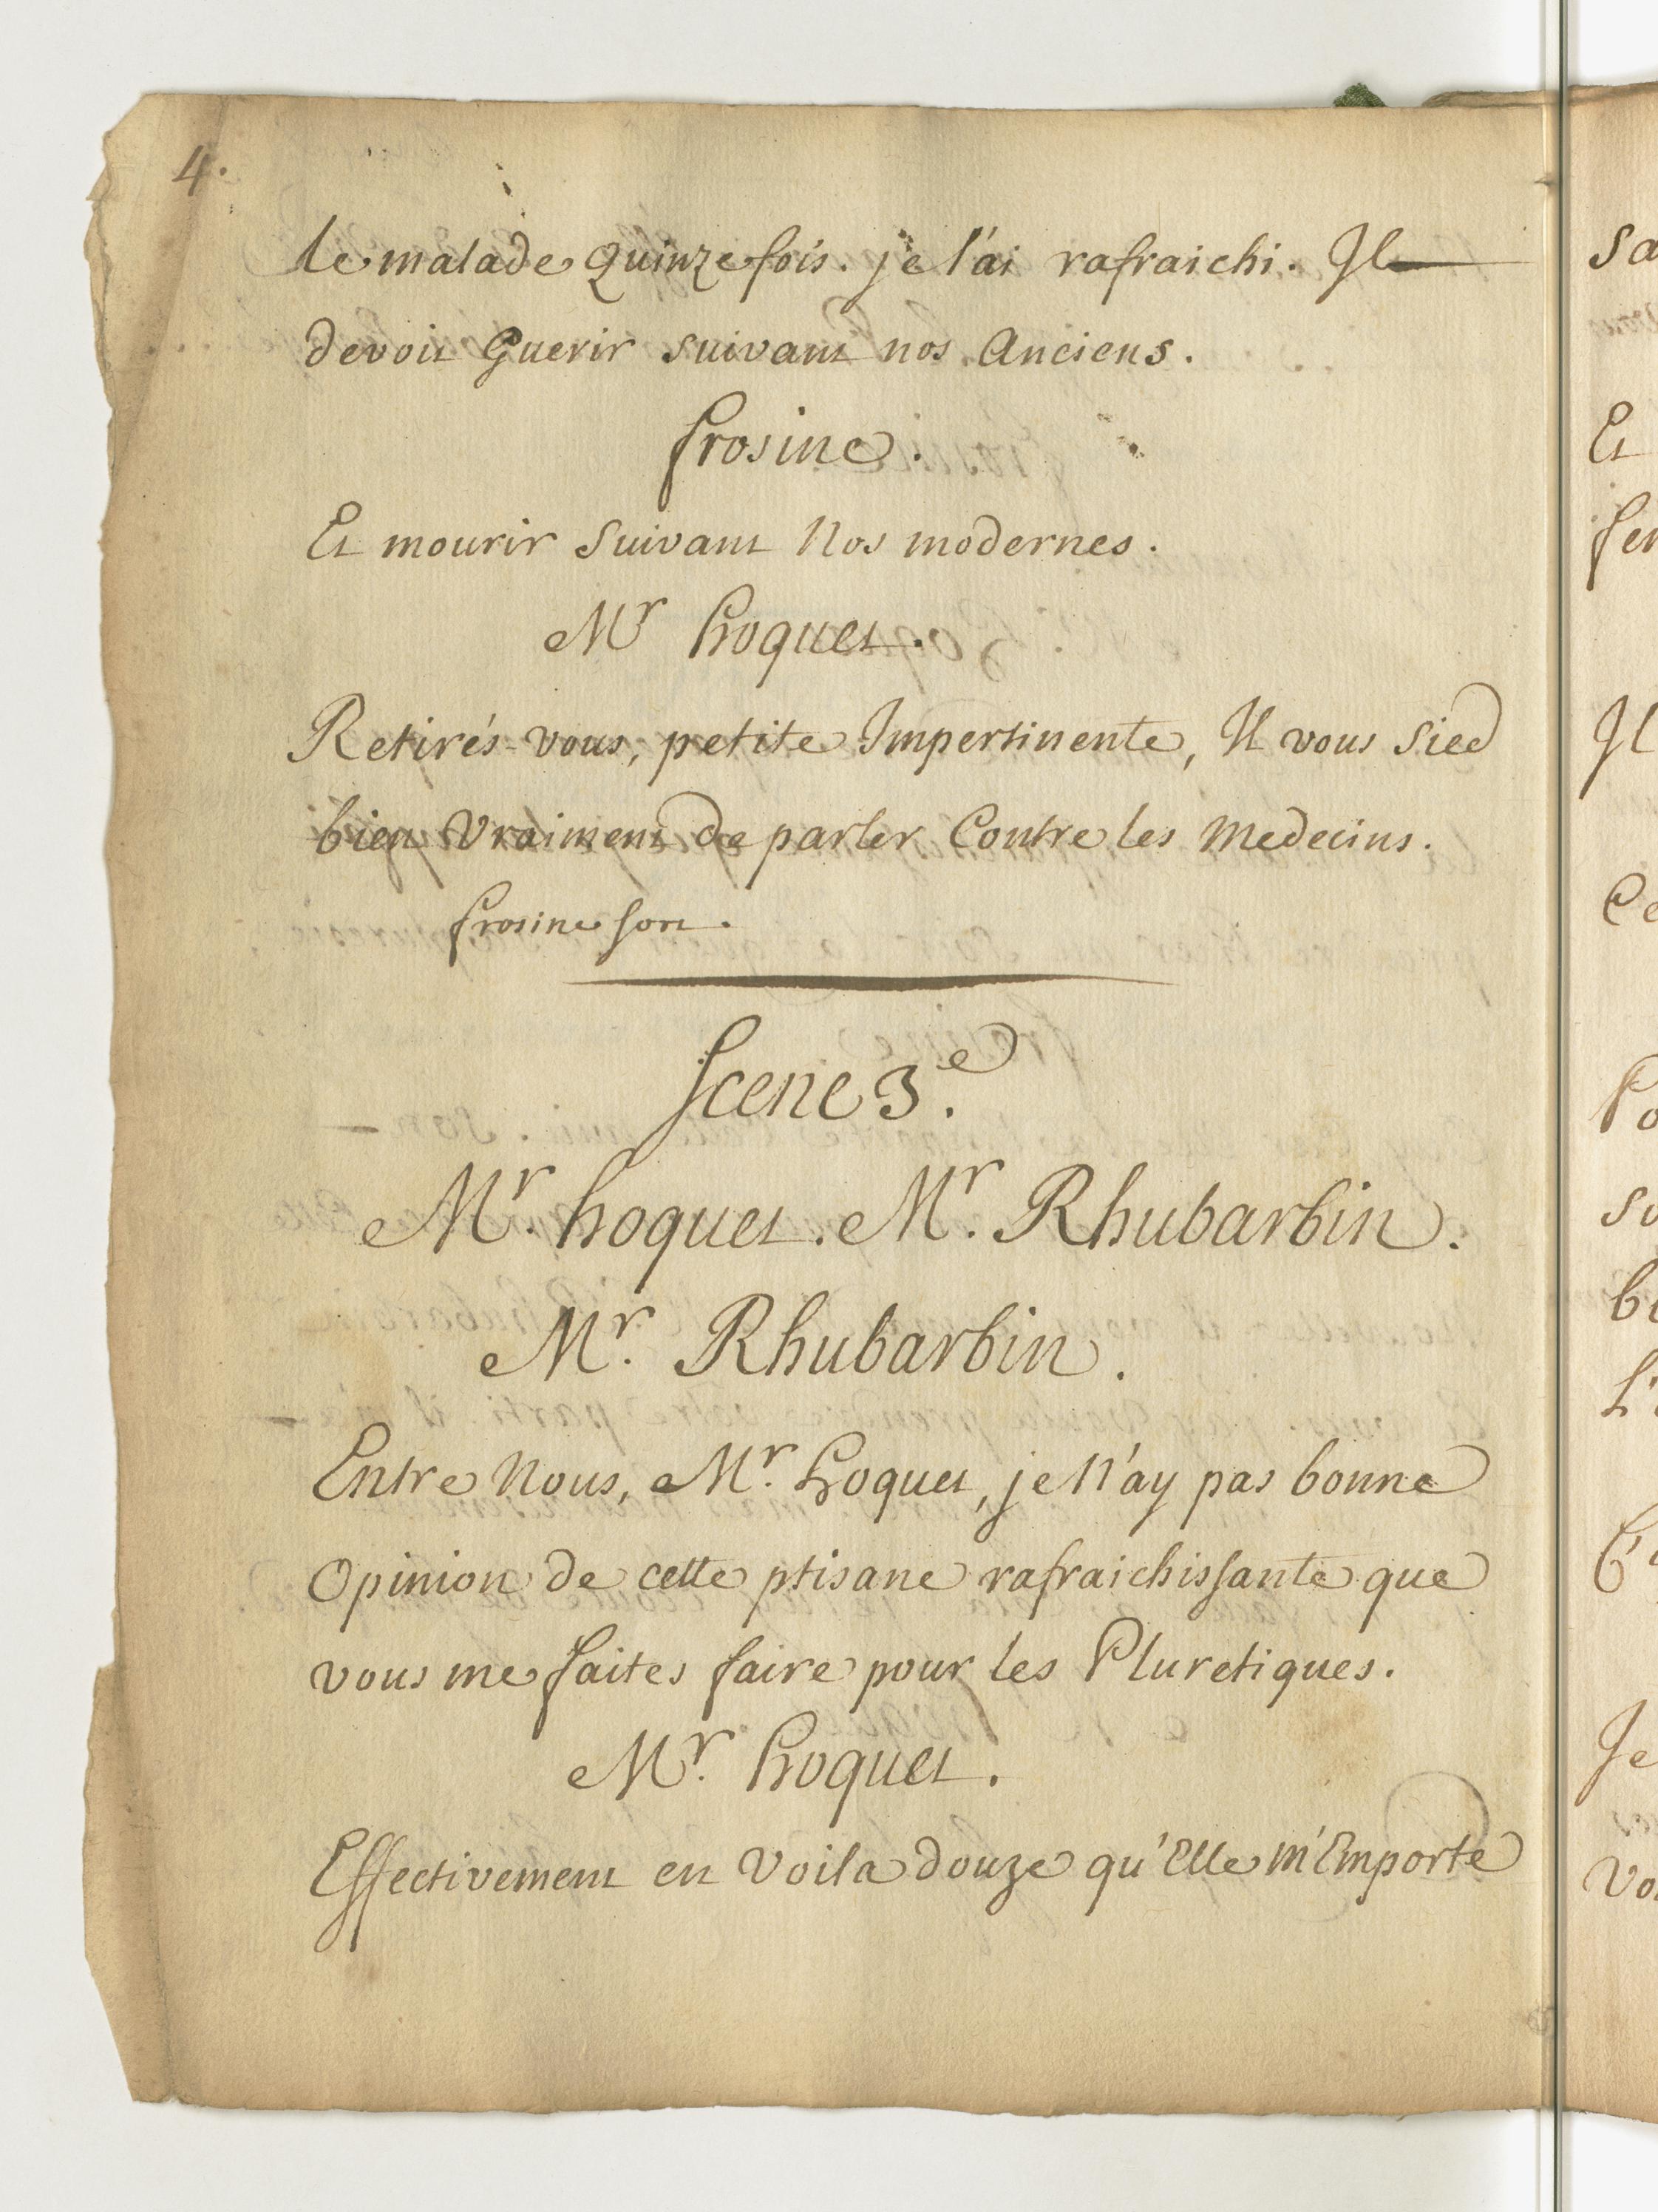 4.
le malade Quinze fois. je l'ai rafraichi. Il
devoit Guerir suivant nos Anciens.
frosine.
Et mourir suivant Nos modernes.
Mr hoquet.
Retirés-vous, petite Impertinente, Il vous sied
bien vraiment de parler Contre les medecins.
frosine sort.
Scene 3e.
Mr. hoquet. Mr. Rhubarbin.
Mr. Rhubarbin.
Entre Nous, Mr. hoquet, je N'ay pas bonne
Opinion de cette ptisane rafraichissante que
vous me faites faire pour les Pluretiques.
Mr. hoquet.
Effectivement en voila douze qu'Elle m'Emporte